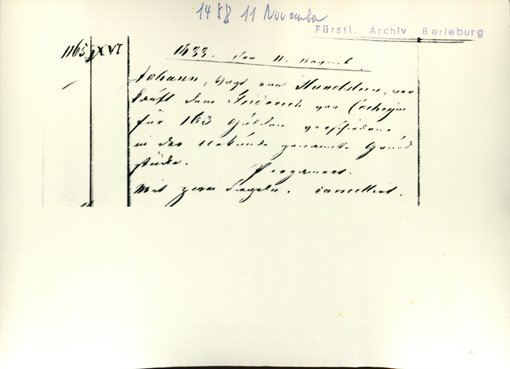 1488 11 November
Fürstl. Archiv Berleburg
1165 XVI 1433. den 11. August.
Johann, Vogt von Hunolstein, ver
kauft dem Friederich von Cochem
für 163 Gulden verschiedene
in der Urkunde genannte Grund
stücke. Pergament.
Mit zwei Siegeln. cancelliert.